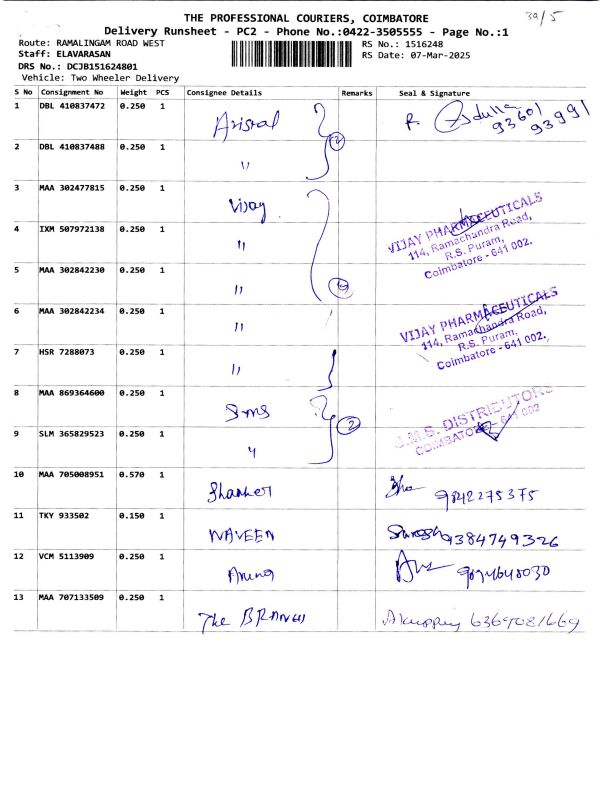 THE PROFESSIONAL COURIERS, COIMBATORE
39/5
Delivery Runsheet - PC2 - Phone No.:0422-3505555 - Page No.:1
Route: RAMALINGAM ROAD WEST
RS No.: 1516248
Staff: ELAVARASAN
RS Date: 07-Mar-2025
DRS No.: DCJB151624801
Vehicle: Two Wheeler Delivery
S No Consignment No Weight PCS Consignee Details Remarks Seal & Signature
1 DBL 410837472 0.250 1 R. Abdulla 93601 93991
2 DBL 410837488 0.250 1 " 2
3 MAA 302477815 0.250 1 Vijay
VIJAY PHARMACEUTICALS
114, Ramachandra Road,
R.S. Puram,
Coimbatore - 641 002.
4 IXM 507972138 0.250 1 "
5 MAA 302842230 0.250 1 "
6 MAA 302842234 0.250 1 "
VIJAY PHARMACEUTICALS
114, Ramachandra Road,
R.S. Puram,
Coimbatore - 641 002.
7 HSR 7288073 0.250 1 "
8 MAA 869364600 0.250 1 2
J.M.S. DISTRIBUTORS
COIMBATORE - 641 002
9 SLM 365829523 0.250 1 "
10 MAA 705008951 0.570 1 Shanker 9842275375
11 TKY 933502 0.150 1 NAVEEN Suresh 9384749326
12 VCM 5113909 0.250 1 Aruna
13 MAA 707133509 0.250 1 The 6369081669